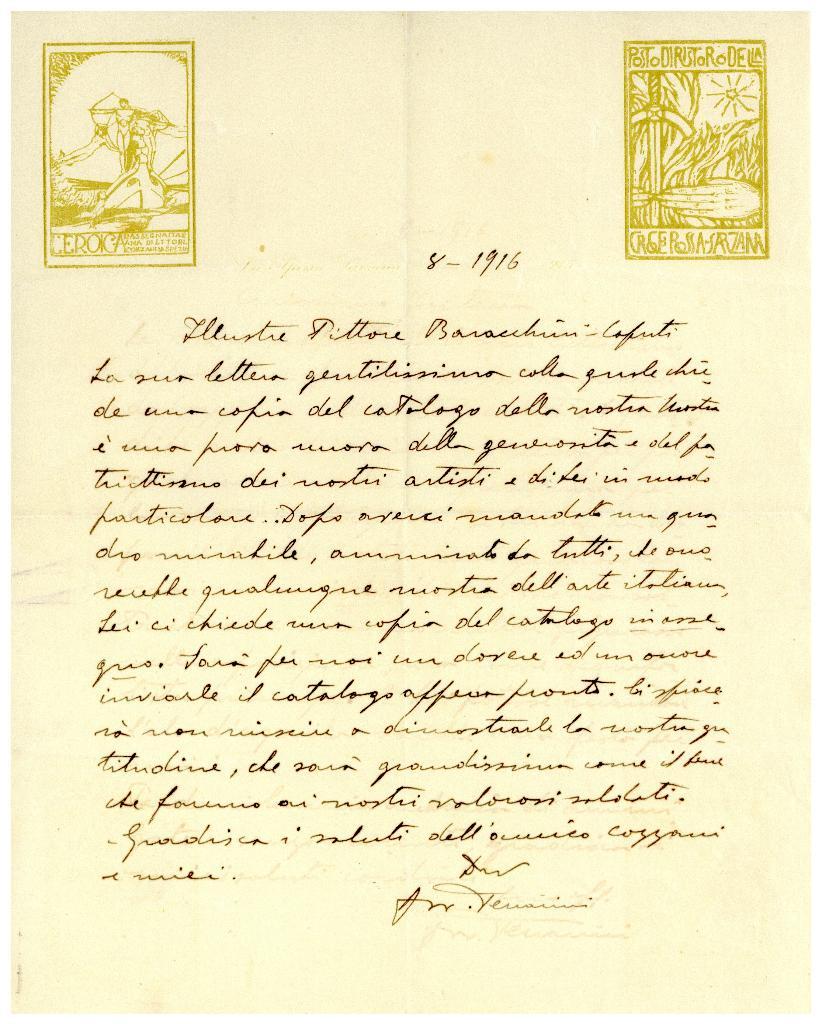 L'EROICA RASSEGNA ITALIANA DI ETTORE COZZANI LA SPEZIA
POSTO DI RISTORO DELLA
CROCE ROSSA - SARZANA
8 - 1916
Illustre Pittore Baracchini-Caputi
La sua lettera gentilissima colla quale chie-
de una copia del catalogo della nostra Mostra
è una prova nuova della generosità e del pa-
triottismo dei nostri artisti e di Lei in modo
particolare. Dopo averci mandato un qua-
dro mirabile, ammirato da tutti, che ono-
rerebbe qualunque mostra dell'arte italiana,
Lei ci chiede una copia del catalogo in asse-
gno. Sarà per noi un dovere ed un onore
inviarle il catalogo appena pronto. Ci spiace-
rà non riuscire a dimostrarle la nostra gra-
titudine, che sarà grandissima come il bene
che faremo ai nostri valorosi soldati.
Gradisca i saluti dell'amico Cozzani
e miei.
Dev
Avv. Terrarini